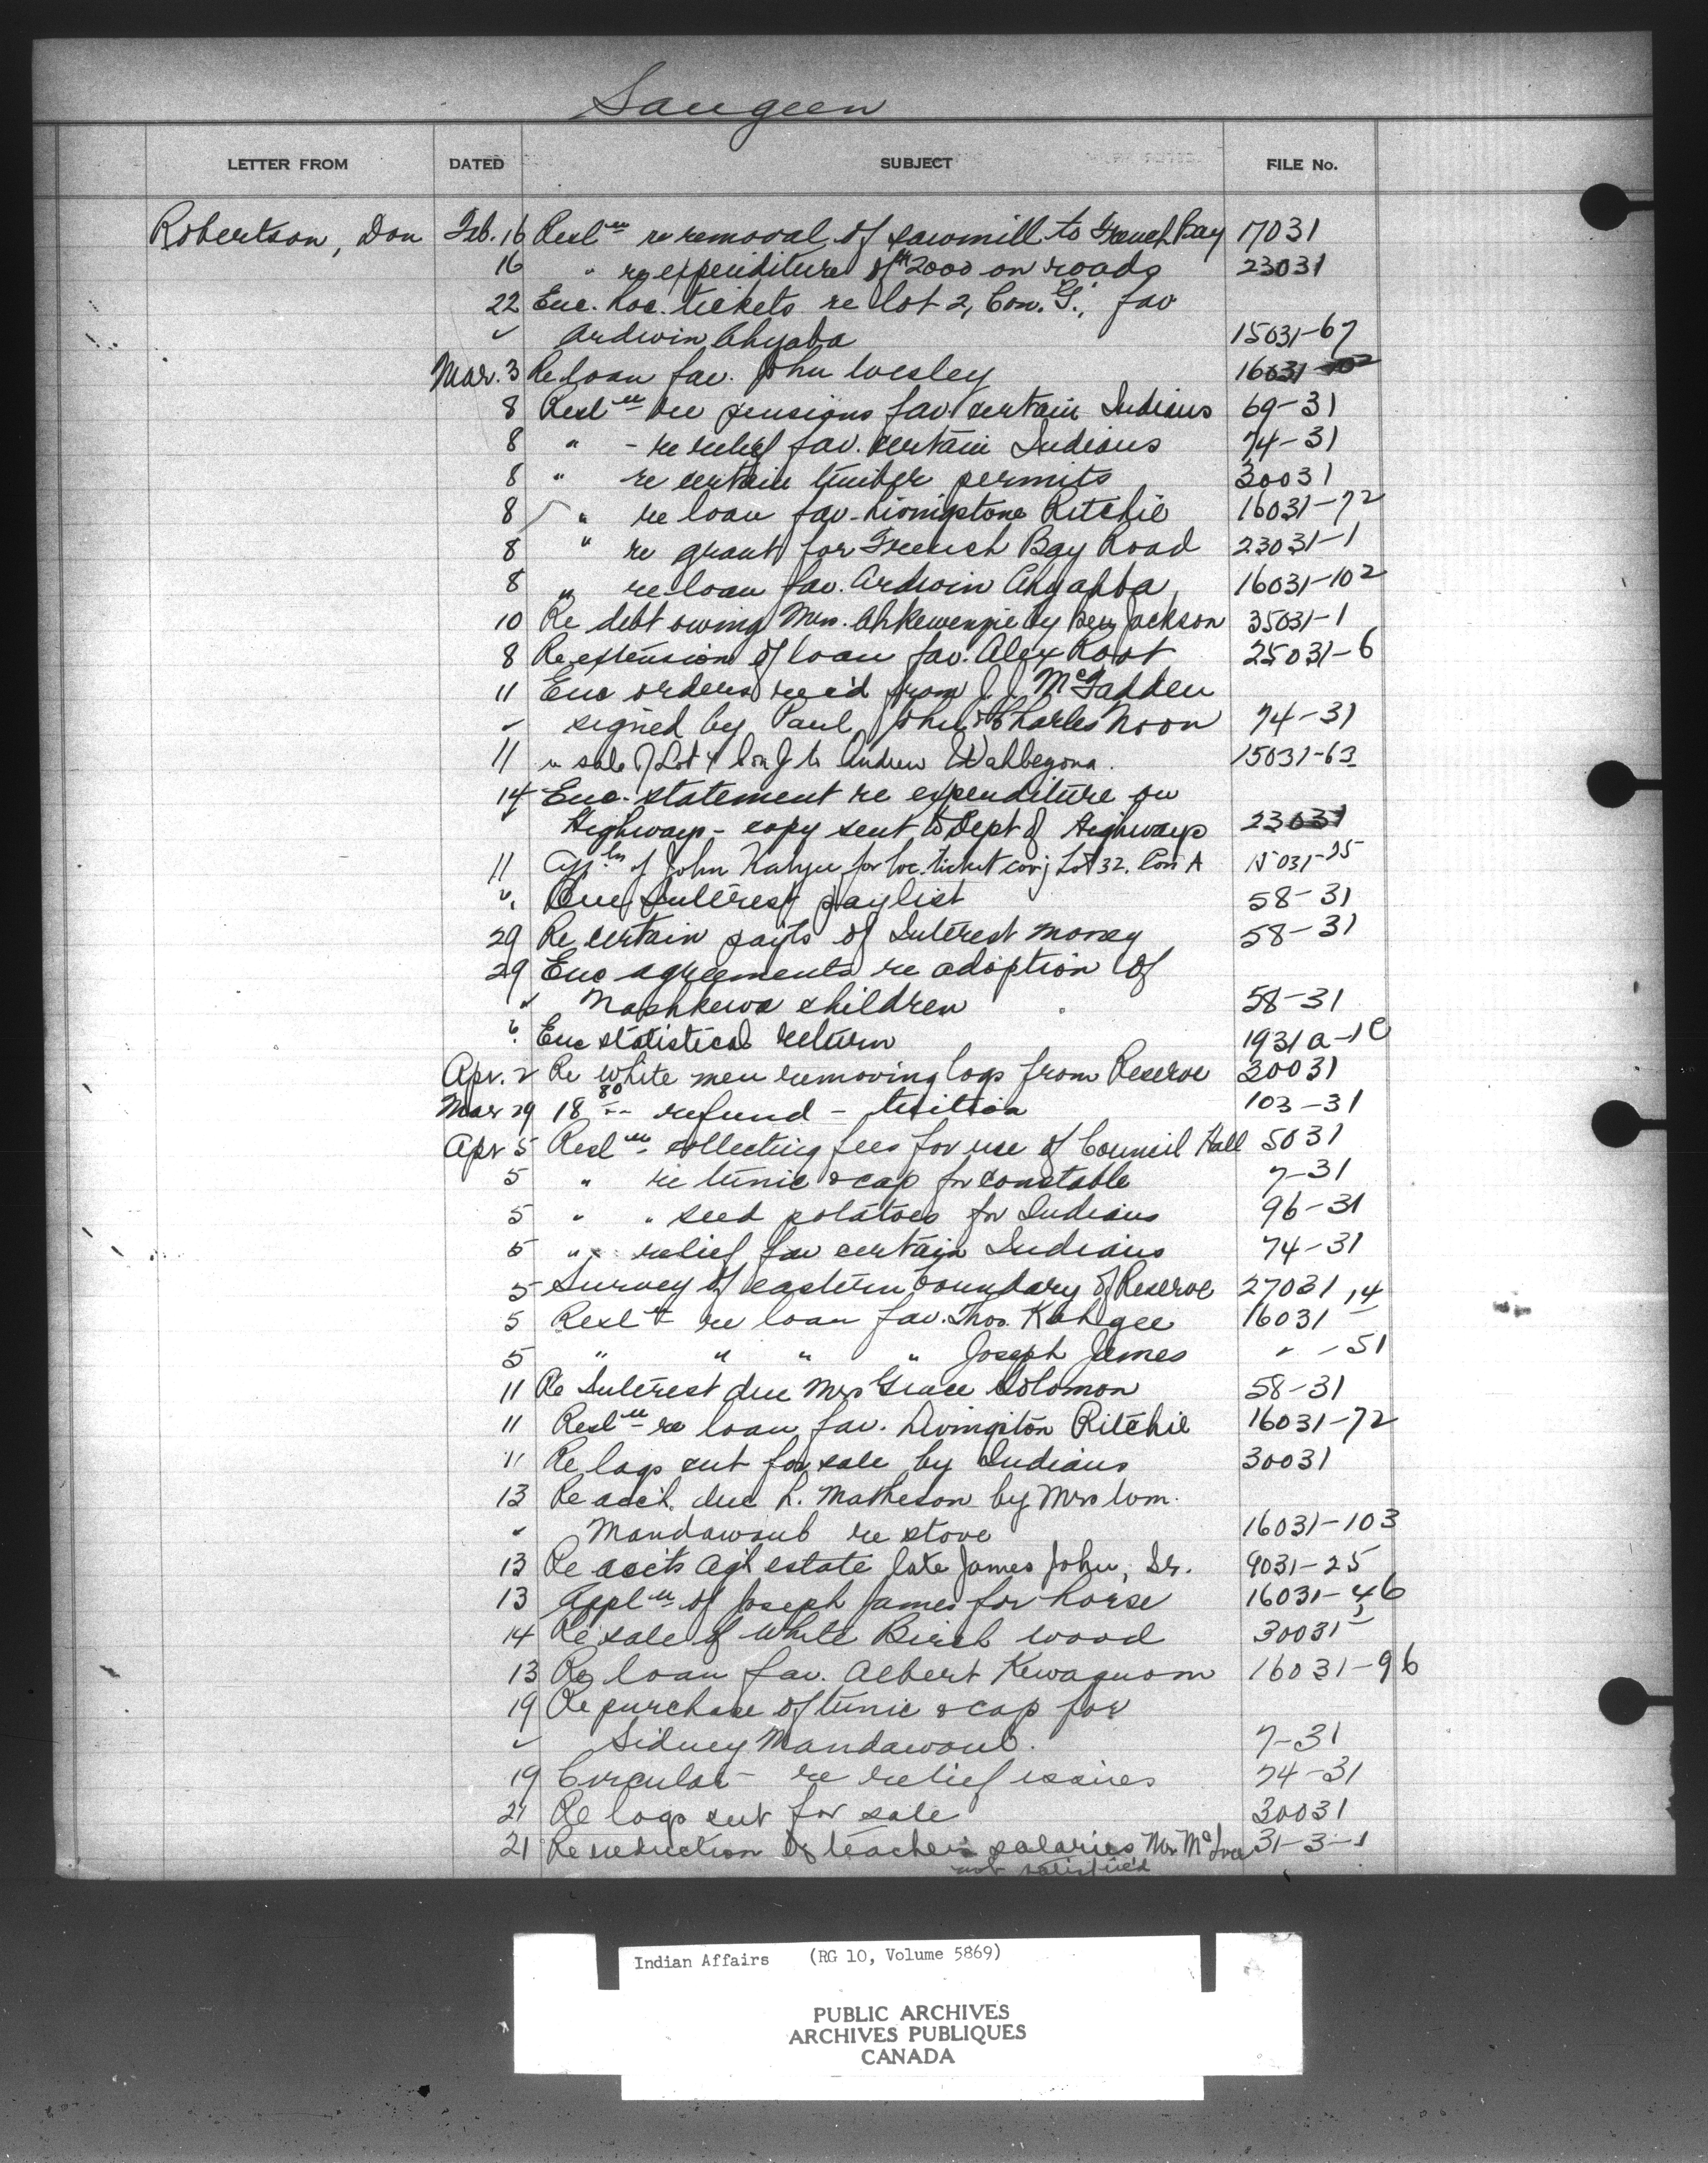 Saugeen
LETTER FROM DATED SUBJECT FILE No.
Robertson, Don Feb. 16 Resl'n re removal of sawmill to French Bay 17031
16 " re expenditure of $2000 on roads 23031
22 Enc. Loc. tickets re lot 2, Con. "G", fav
" Ardwin Ahyaba 15031-67
Mar. 3 Re loan fav. John Wesley 16031-102
8 Resl'n re pensions fav. certain Indians 69-31
8 " - re relief fav. certain Indians 74-31
8 " re certain timber permits 30031
8 " re loan fav. Livingstone Ritchie 16031-72
8 " re grant for French Bay Road 23031-1
8 " re loan fav. Ardwin Ahyahba 16031-102
10 Re debt owing Mrs. Ahkewenzie by Jackson 35031-1
8 Re extension of loan fav. Alex Root 25031-6
11 Enc orders rec'd from J. J. McFadden
" signed by Paul, John & Charles Noon 74-31
11 re sale of Lot 4 Con J to Andrew Wahbegona. 15031-63
14 Enc. statement re expenditure on
Highways - copy sent to Dept of Highways 23031
11 App'ln of John Kahgee for loc. ticket cov'g Lot 32. Con A 15031-25
" Enc Interest paylist 58-31
29 Re certain payts of Interest money 58-31
29 Enc agreements re adoption of
" Mashkewa children 58-31
" Enc statistical return 1931a-1C
Apr. 2 Re White men removing logs from Reserve 30031
Mar 29 18 80 refund - tuition 103-31
Apr 5 Resl'n collecting fees for use of Council Hall 5031
5 " re tunic & cap for constable 7-31
5 " " seed potatoes for Indians 96-31
5 " relief fav certain Indians 74-31
5 Survey of eastern boundary of Reserve 27031
5 Resl'n re loan fav. Thos. Kahgee 16031-14
5 " " " " Joseph James " -51
11 Re Interest due Mrs Grace Solomon 58-31
11 Resl'n re loan fav. Livingston Ritchie 16031-72
11 Re logs cut for sale by Indians 30031
13 Re acc't. due L. Matheson by Mrs Wm.
" Mandawoub re stove 16031-103
13 Re acc'ts ag't estate late James John, Sr. 9031-25
13 Appl'n of Joseph James for horse 16031-46
14 Re sale of White Birch wood 30031
13 Re loan fav. Albert Kewaquom 16031-96
19 Re purchase of tunic & cap for
" Sidney Mandawoub. 7-31
19 Circular - re relief issues 74-31
21 Re logs cut for sale 30031
21 Re reduction of teachers salaries Mr 31-3-1
not satisfied
Indian Affairs (RG 10, Volume 5869)
PUBLIC ARCHIVES
ARCHIVES PUBLIQUES
CANADA